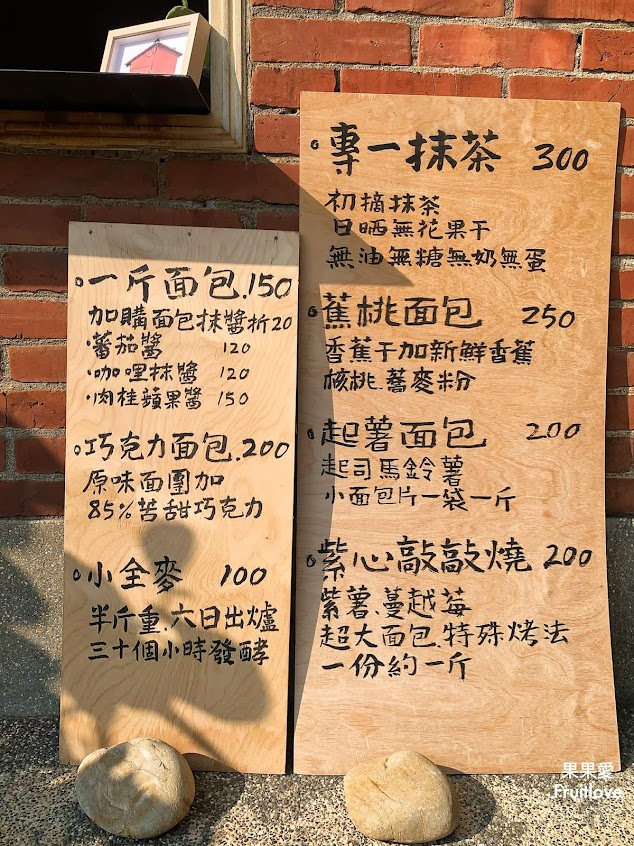 一斤面包.150
加購面包抹醬折20
·蕃茄醬 120
·咖哩抹醬 120
·肉桂蘋果醬 150
巧克力面包.200
原味面團加
85%苦甜巧克力
小全麥 100
半斤重.六日出爐
三十個小時發酵
專一抹茶 300
初摘抹茶
日晒無花果干
無油無糖無奶無蛋
蕉桃面包 250
香蕉干加新鮮香蕉
核桃.蕎麥粉
起薯面包 200
起司馬鈴薯
小面包片一袋一斤
紫心敲敲燒 200
紫薯.蔓越莓
超大面包.特殊烤法
一份約一斤
果果愛
Fruitlove